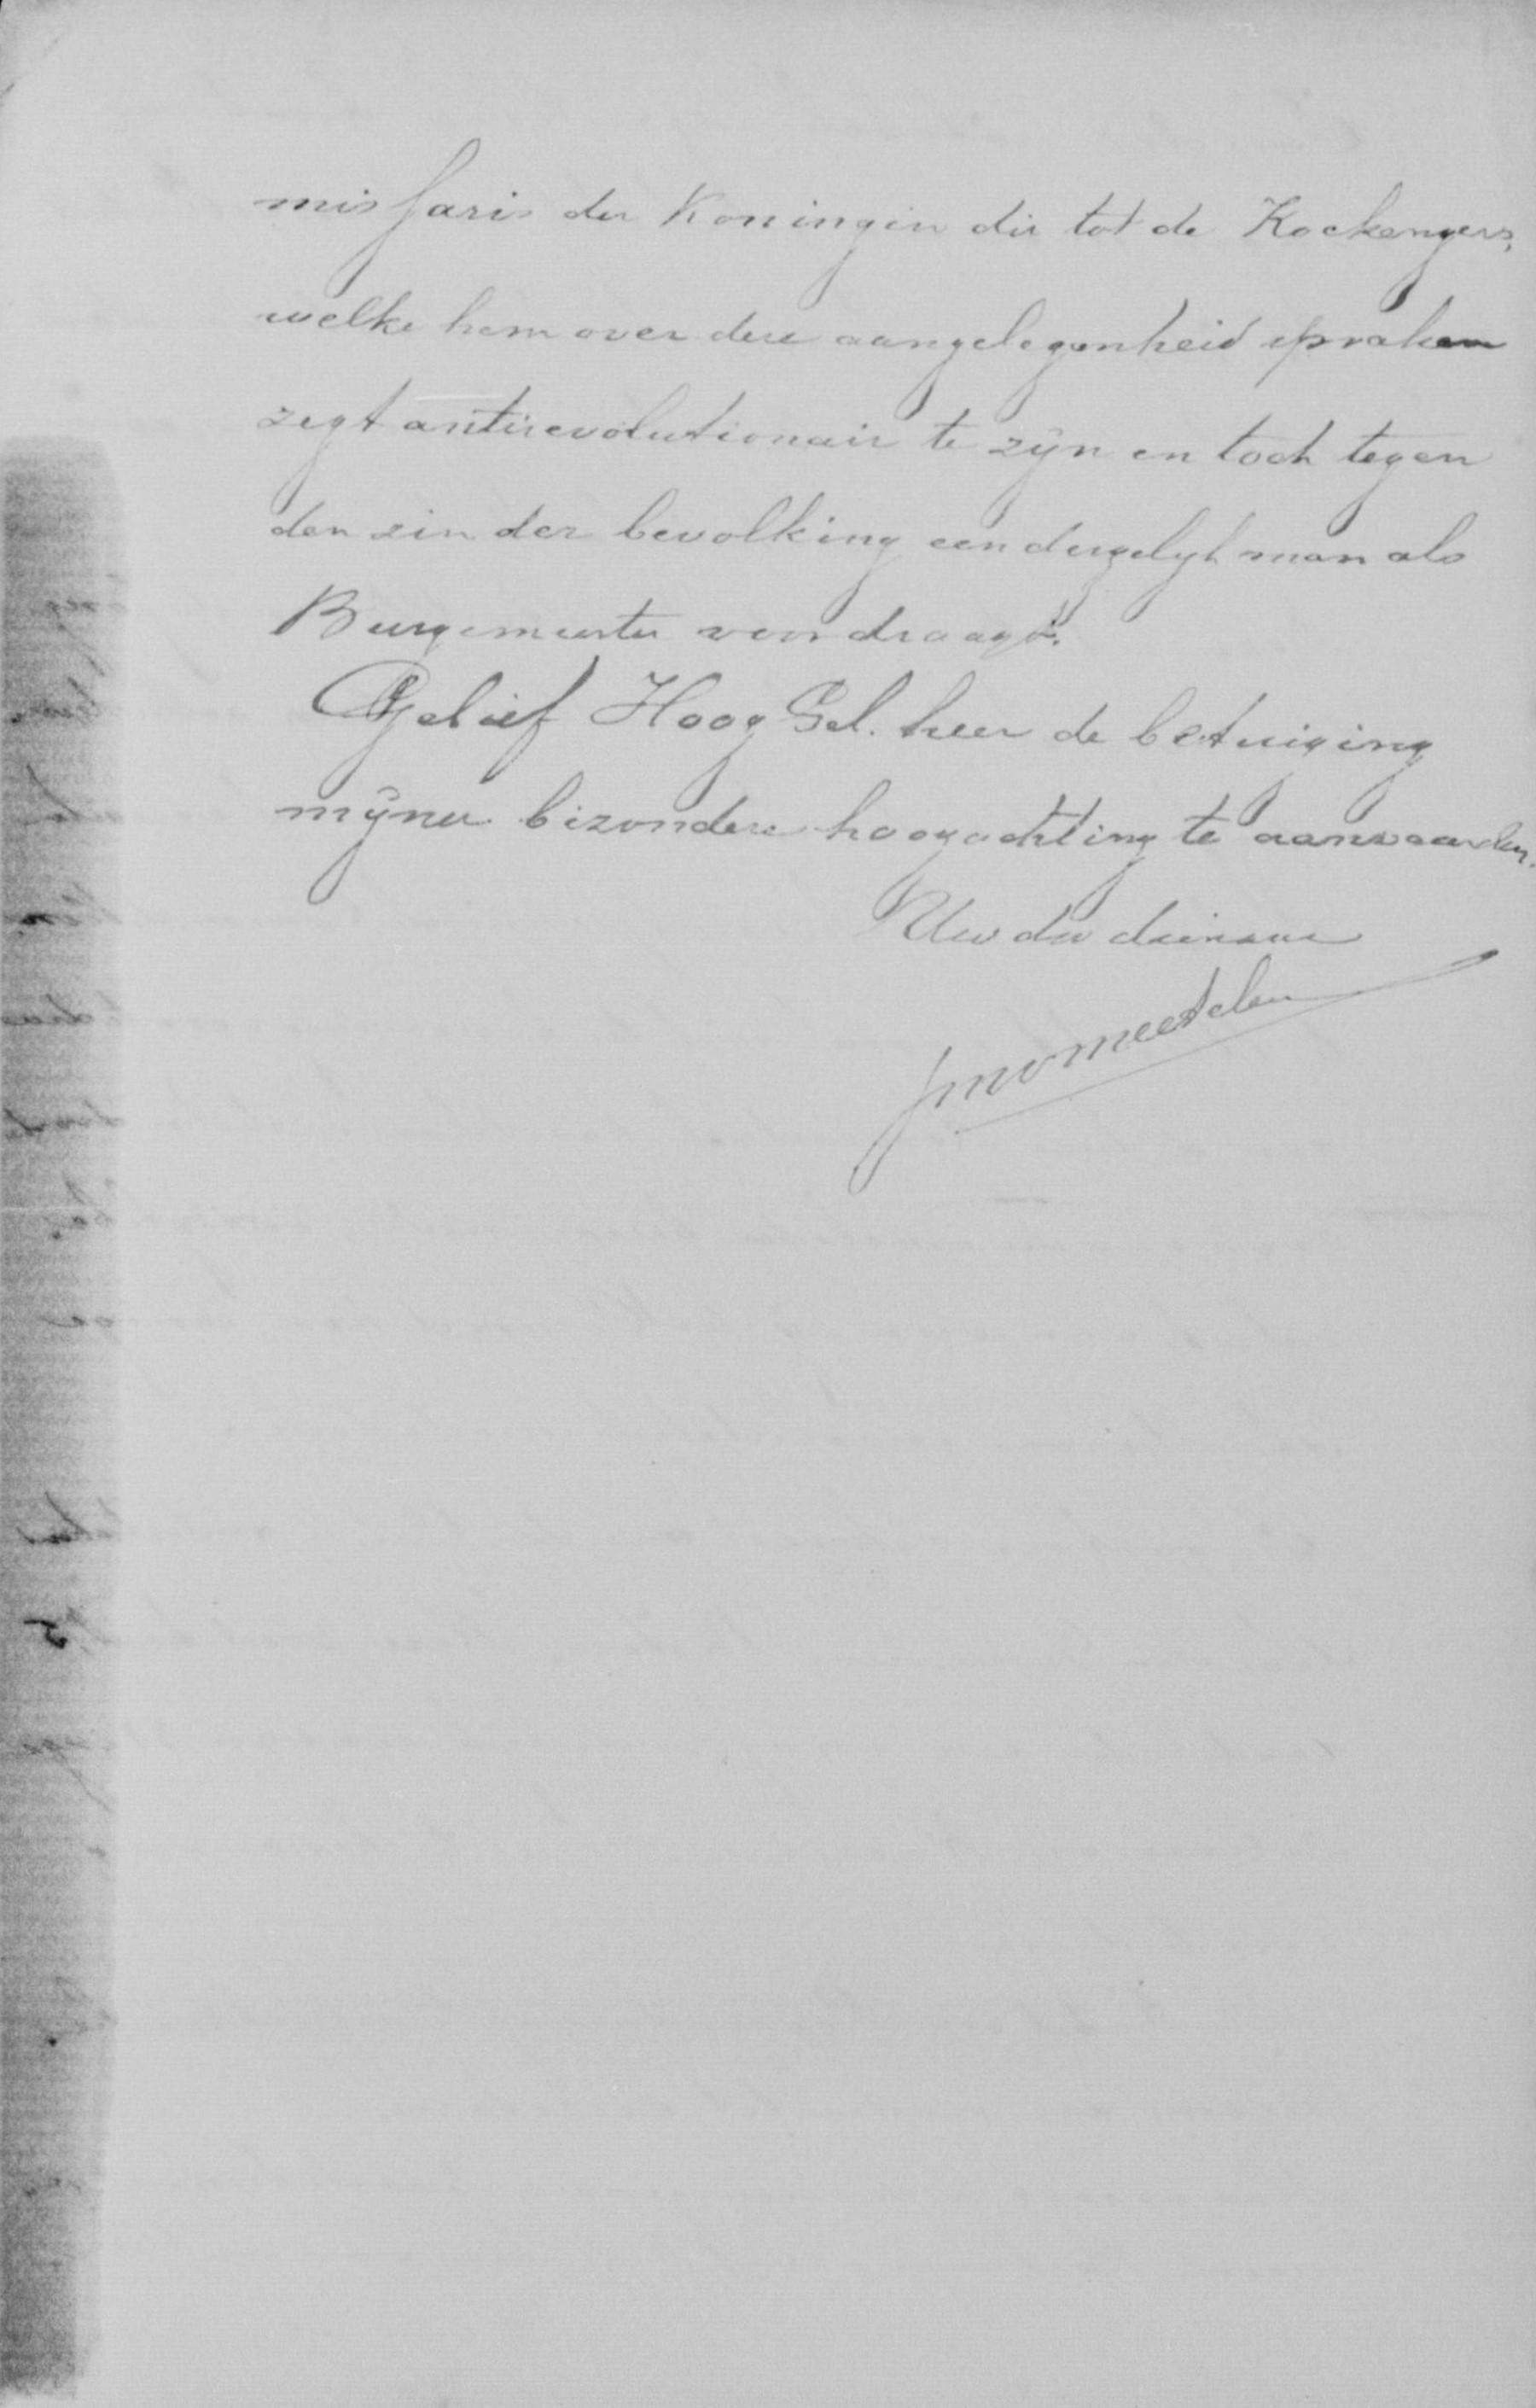 missaris der Koningin die tot de Kockengers,
welke hem over deze aangelegenheid spraken
zegt antirevolutionair te zijn en toch tegen
den zin der bevolking een dergelijk man als
Burgemeester voordraagt.
Gelief Hoog Gel. heer de betuiging
mijner bizondere hoogachting te aanvaarden.
Uw dw dienaar